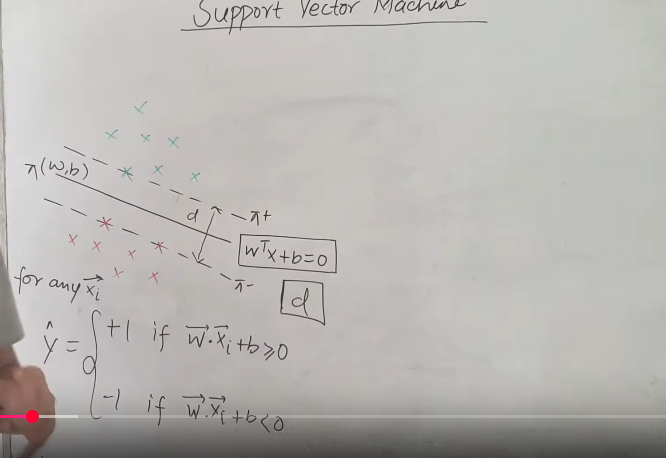 Support Vector Machine
π(w,b)
d
π+
wᵀx+b=0
π-
d
for any x⃗i
ŷ = { +1 if w⃗.x⃗i+b≥0
-1 if w⃗.x⃗i+b<0